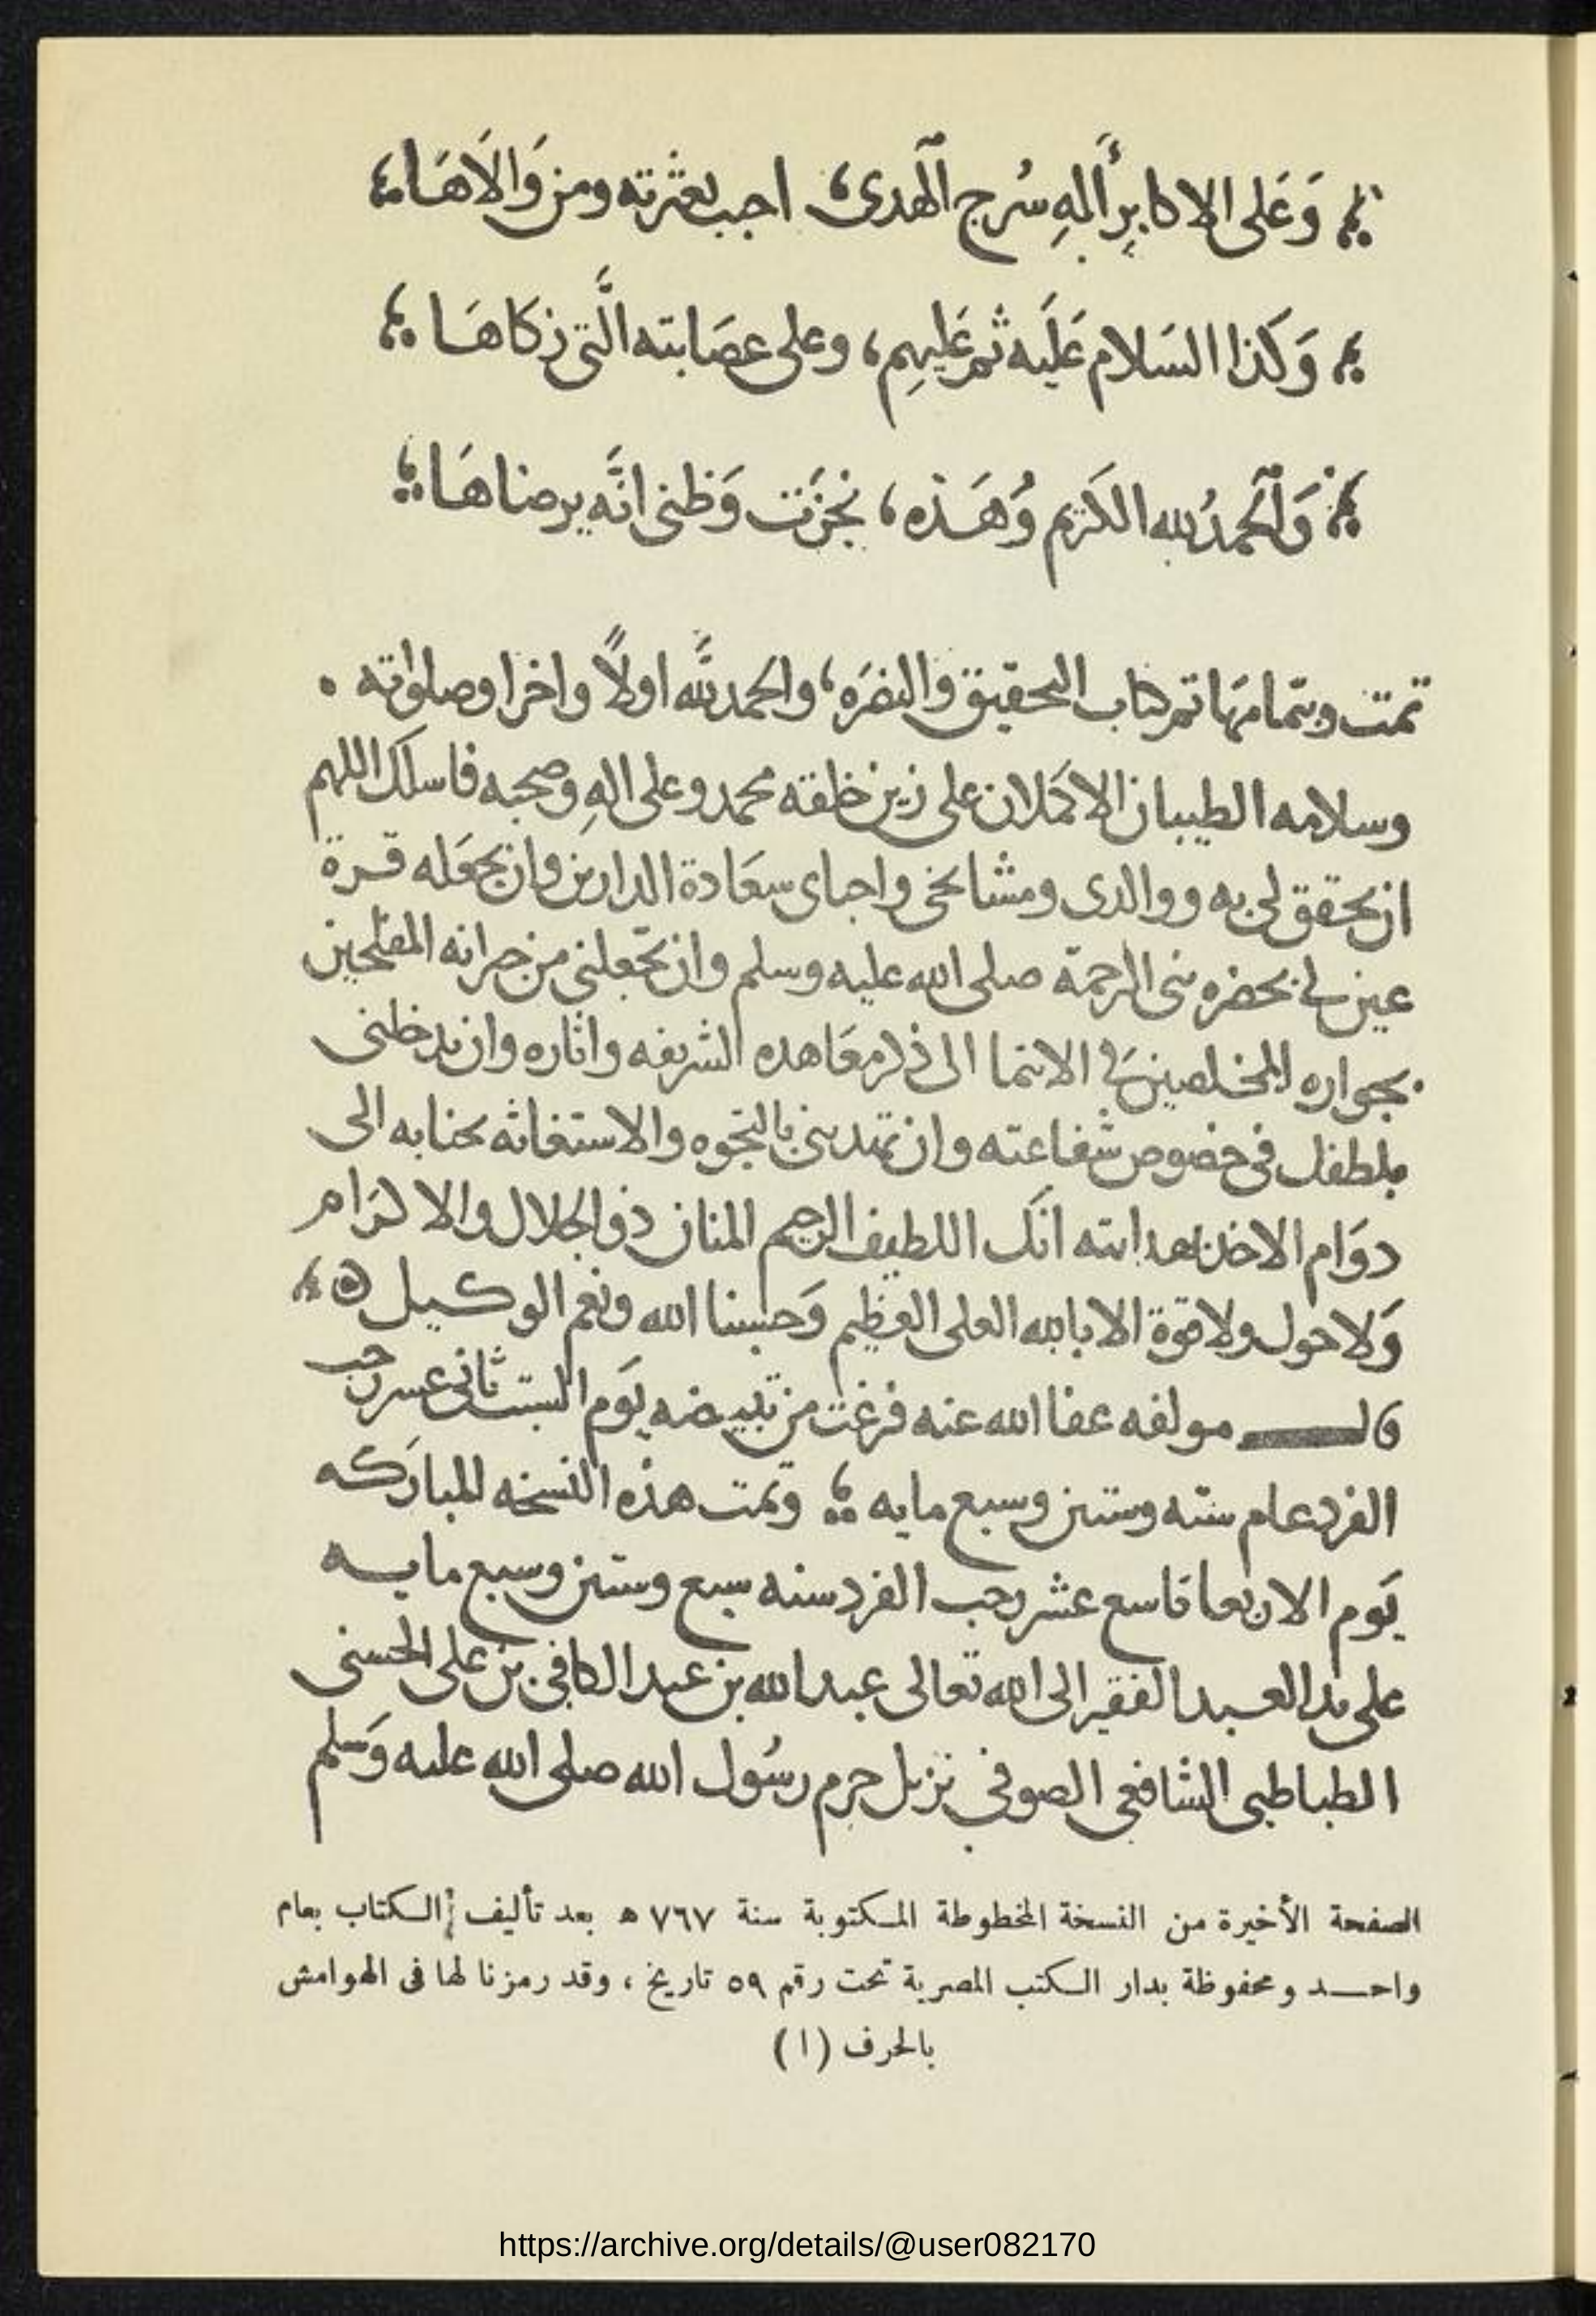 وَعَلى الاكابرِ أَلهِ سُرج الهدى، احبب بعترته ومن وَالَاهَا
وَكَذا السَلام عَلَيه ثم عَليهِم، وعلى عصَابته الَّتي زكاهَا
وَالحمدُ لله الكَريم وَهَذه، نجزَت وَظنى انَّه يرضاهَا
تمت وبتمامهَا تم كتاب التحقيق والنصرَه، والحمد للَّه اولاً واخرا وصلواته
وسلامه الطيبان الاكمَلان على زين خلقه محمد وعلى الهِ وصحبه فاسلك اللهم
ان يحقق لى به ووالدى ومشايخى واحباى سعَادة الدارين وان يجعَله قرة
عين لى بحضره نبى الرحمة صلى الله عليه وسلم وان تجعلنى من جيرانه المفلحين
بجواره المخلصين فى الانتما الى ذكر معَاهده الشريفه واثاره وان يدخلنى
فى خصوص شفاعته وان تمدنى بالتجوه والاستغاثه بجنابه الى
دوَام الاخذ بهدايته انَك اللطيف الرحيم المنان ذو الجلال والاكرَام
وَلا حول ولا قوة الا بالله العلى العظيم وَحسبنا الله ونعم الوكيل
قال مولفه عفا الله عنه فرغت من تبييضه يَوم السبت ثانى عسر رجب
الفرد عام سته وستين وسبع مايه وتمت هذه النسخه المبارَكه
يَوم الاربعا تاسع عشر رجب الفرد سنه سبع وستين وسبع مايه
على يد العبد الفقير الى الله تعالى عبد الله بن عبد الكافى بن على الحسنى
الطباطبى الشافعى الصوفى نزيل حرم رسُول الله صلى الله عليه وَسلم
الصفحة الأخيرة من النسخة المخطوطة المكتوبة سنة ٧٦٧ ه بعد تأليف الكتاب بعام
واحد ومحفوظة بدار الكتب المصرية تحت رقم ٥٩ تاريخ ، وقد رمزنا لها فى الهوامش
بالحرف (ا)
https://archive.org/details/@user082170